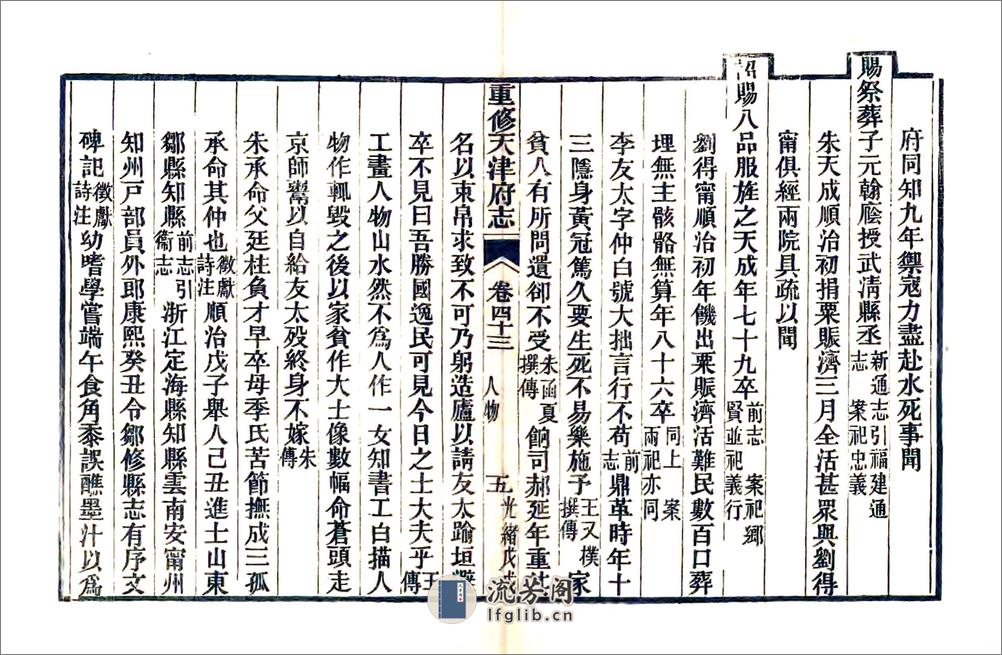 府同知九年禦寇力盡赴水死事聞
賜祭葬子元翰廕授武淸縣丞新通志引福建通志　案祀忠義
朱天成順治初捐粟賑濟三月全活甚眾與劉得
甯俱經兩院具疏以聞
詔賜八品服旌之天成年七十九卒前志　案祀鄉賢並祀義行
劉得甯順治初年饑出粟賑濟活難民數百口葬
埋無主骸骼無算年八十六卒同上　案兩祀亦同
李友太字仲白號大拙言行不苟前志鼎革時年十
三隱身黃冠篤久要生死不易樂施予王又樸撰傳家
貧人有所問遺卻不受朱函夏撰傳餉司郝延年重其
重修天津府志
卷四十三
人物
五
光緒戊
名以束帛求致不可乃躬造廬以請友太踰垣避
卒不見曰吾勝國逸民可見今日之士大夫乎王傳
工畫人物山水然不為人作一女知書工白描人
物作輒毀之後以家貧作大士像數幅命蒼頭走
京師鬻以自給友太歿終身不嫁朱傳
朱承命父廷柱負才早卒母季氏苦節撫成三孤
承命其仲也徵獻詩注順治戊子舉人己丑進士山東
鄒縣知縣前志引衞志浙江定海縣知縣雲南安甯州
知州戸部員外郎康熙癸丑令鄒修縣志有序文
碑記徵獻詩注幼嗜學嘗端午食角黍誤蘸墨汁以爲
流芳阁
lfglib.cn